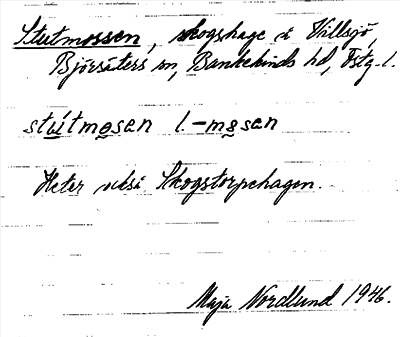 Stutmossen, skogshage i Villsjö,
Björsäters sn, Bankekinds hd, Östg. l.
stútmosen l. -mosen
Heter också Skogstorpehagen.
Maja Nordlund 1946.